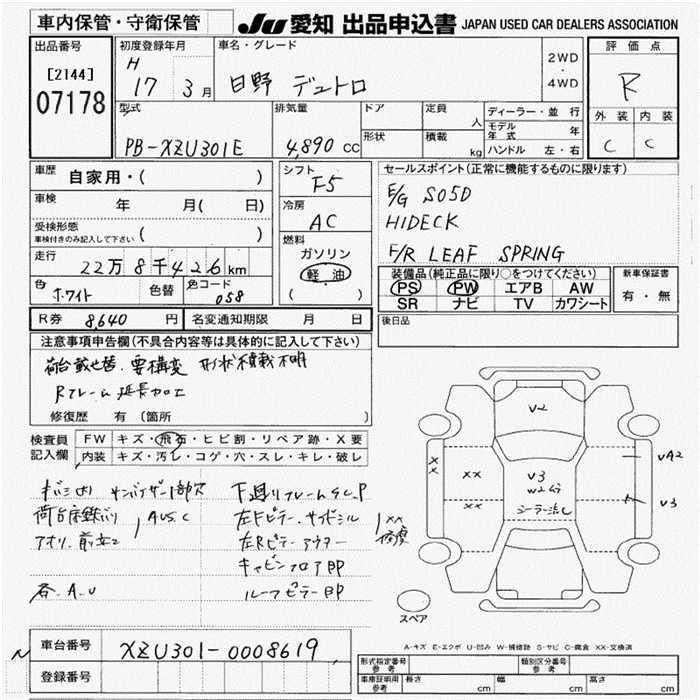 車内保管・守衛保管
JU 愛知 出品申込書 JAPAN USED CAR DEALERS ASSOCIATION
出品番号
[2144]
07178
初度登録年月
H
17 3月
車名・グレード
日野 デュトロ
2WD
・
4WD
評価点
R
外装 内装
C C
型式
PB-XZU301E
排気量
4,890 CC
ドア
形状
定員
人
積載
kg
ディーラー・並行
モデル年式 年
ハンドル 左・右
車歴
自家用・( )
車検
年 月( 日)
受検形態
車検付きのみ記入して下さい ( )
走行
22万8千426km
色
ホワイト
色替
色コード
058
シフト
F5
冷房
AC
燃料
ガソリン
軽・油
( )
セールスポイント(正常に機能するものに限ります)
E/G S05D
HIDECK
F/R LEAF SPRING
装備品(純正品に限り○をつけてください)
PS PW エアB AW
SR ナビ TV カワシート
新車保証書
有・無
R券 8,640 円
名変通知期限 月 日
後日品
注意事項申告欄(不具合内容等は具体的に記入して下さい)
荷台載せ替 要構変 形状積載不明
Rフレーム延長加工
修復歴 有(箇所 )
検査員
記入欄
FW キズ・飛石・ヒビ割・リペア跡・X要
内装 キズ・汚レ・コゲ・穴・スレ・キレ・破レ
サンバイザー1部欠
AUS.C
各 A.U
下廻りフレームSCP
左Fピラー サイドシル
左Rピラー アウター
キャビンフロア
ルーフピラー
XX
修復
V2
V3
W2
XX XX
XX XX
VA2
V3
スペア
A-キズ E-エクボ U-凹み W-補修跡 S-サビ C-腐食 XX-交換済
車台番号
XZU301-0008619
登録番号
形式指定番号
参考
類別区分番号
参考
車庫証明用
参考
長さ cm
幅 cm
高さ cm